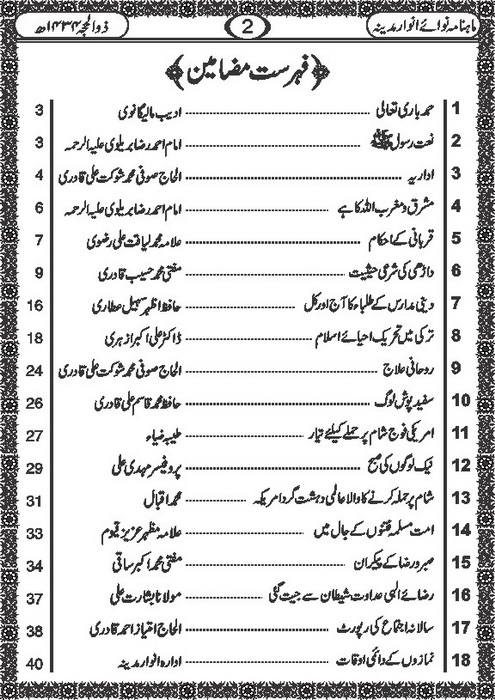 ماہنامہ نوائے انوار مدینہ 2 ذوالحجہ ۱۴۳۴ھ
﴿فہرست مضامین﴾
1 حمد باری تعالیٰ ادیب مالیگانوی 3
2 نعت رسول ﷺ امام احمد رضا بریلوی علیہ الرحمہ 3
3 اداریہ الحاج صوفی محمد شوکت علی قادری 4
4 مشرق و مغرب اللہ کا ہے امام احمد رضا بریلوی علیہ الرحمہ 6
5 قربانی کے احکام علامہ محمد لیاقت علی رضوی 7
6 داڑھی کی شرعی حیثیت مفتی محمد حسیب قادری 9
7 دینی مدارس کے طلباء کا آج اور کل حافظ اظہر سہیل عطاری 16
8 ترکی میں تحریک احیائے اسلام ڈاکٹر علی اکبر ازہری 18
9 روحانی علاج الحاج صوفی محمد شوکت علی قادری 24
10 سفید پوش لوگ حافظ محمد قاسم علی قادری 26
11 امریکی فوج شام پر حملے کیلئے تیار طیبہ ضیاء 27
12 نیک لوگوں کی صبح پروفیسر مہدی علی 29
13 شام پر حملہ کرنے کا والا عالمی دہشت گرد امریکہ محمد اقبال 31
14 امت مسلمہ فتنوں کے جال میں علامہ مظہر عزیز قیوم 33
15 صبر و رضا کے پیکران مفتی محمد اکبر ساقی 34
16 رضائے الٰہی عداوت شیطان سے جیت گئی مولانا بشارت علی 37
17 سالانہ اجتماع کی رپورٹ الحاج امتیاز احمد قادری 38
18 نمازوں کے دائمی اوقات ادارہ انوار مدینہ 40